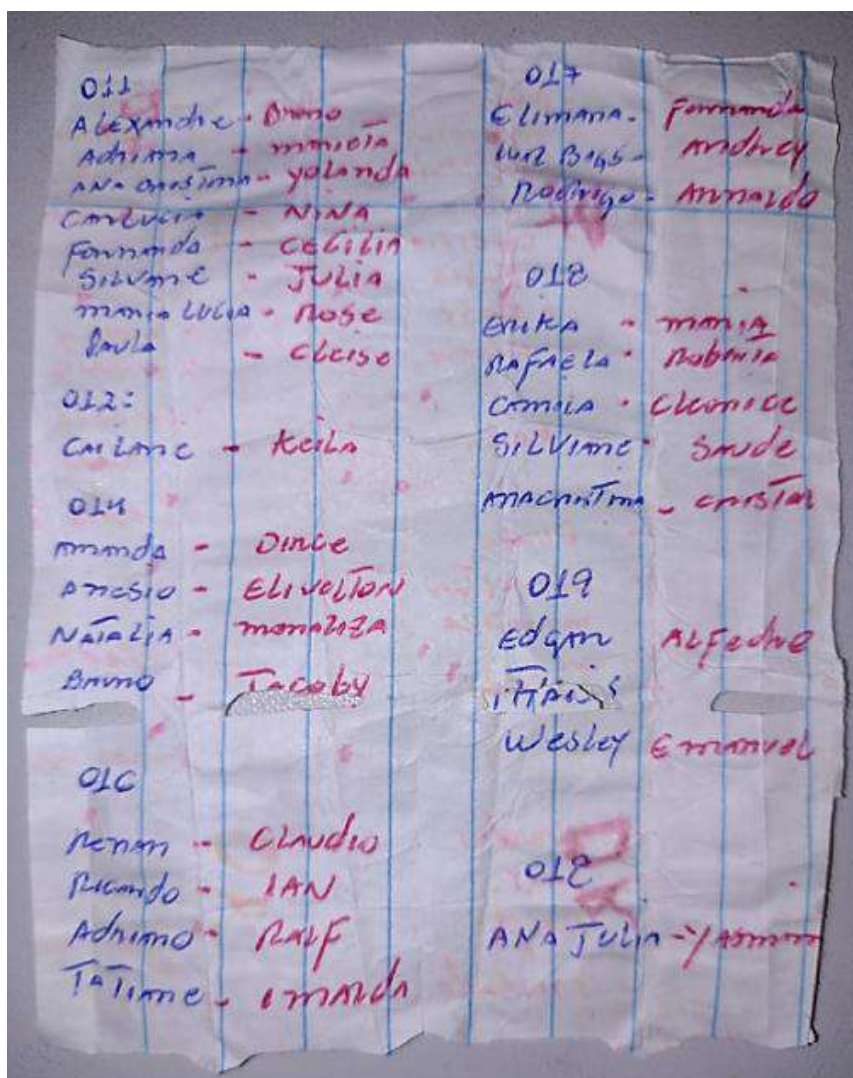 011
Alexandre - Bruno
Adriana - Mariota
Ana Cristina - Yolanda
Carlucia - Nina
Fernanda - Cecilia
Silvane - Julia
Maria Lucia - Rose
Paula - Cleise
012:
Cailane - Keila
014
Amanda - Dirce
Anesio - Elivelton
Natalia - Monaliza
Bruno - Jacoby
016
Renan - Claudio
Ricardo - Ian
Adriano - Ralf
Tatiane - Imalda
017
Elimana - Fernanda
Luiz - Andrey
Rodrigo - Arnaldo
018
Erika - Maria
Rafaela - Roberta
Camila - Cleonice
Silviane - Saude
Ana Cristina - Cristal
019
Edgar Alfedre
Thais
Wesley Emanuel
018
Ana Julia - Yasmim